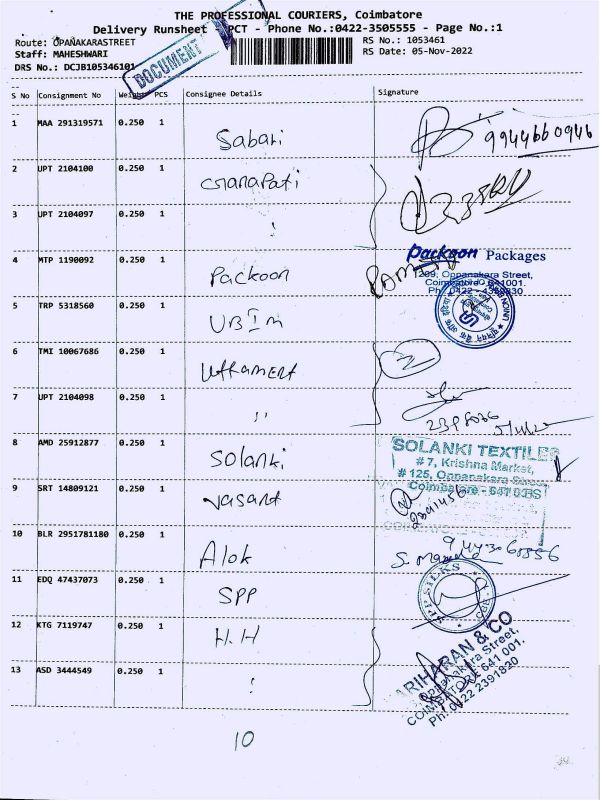 THE PROFESSIONAL COURIERS, Coimbatore
Delivery Runsheet PCT - Phone No.:0422-3505555 - Page No.:1
Route: OPANAKARASTREET RS No.: 1053461
Staff: MAHESHWARI RS Date: 05-Nov-2022
DRS No.: DCJB105346101
DOCUMENT
S No Consignment No Weight PCS Consignee Details Signature
1 MAA 291319571 0.250 1 Sabari 9944660946
2 UPT 2104100 0.250 1 Ganapati
3 UPT 2104097 0.250 1 "
4 MTP 1190092 0.250 1 Packoon
Packoon Packages
1209, Oppanakara Street,
Coimbatore - 641001.
5 TRP 5318560 0.250 1 UBIN
6 TMI 10067686 0.250 1
7 UPT 2104098 0.250 1 "
8 AMD 25912877 0.250 1 Solanki
SOLANKI TEXTILES
# 7, Krishna Market,
# 125, Oppanakara Street
Coimbatore - 641 001
9 SRT 14809121 0.250 1 Vasant
10 BLR 2951781180 0.250 1 Alok
11 EDQ 47437073 0.250 1 SPP
SPP SILKS
12 KTG 7119747 0.250 1 H.H
13 ASD 3444549 0.250 1 "
HARIHARAN & CO
Oppanakara Street,
COIMBATORE 641 001.
Ph: 0422 2391820
10